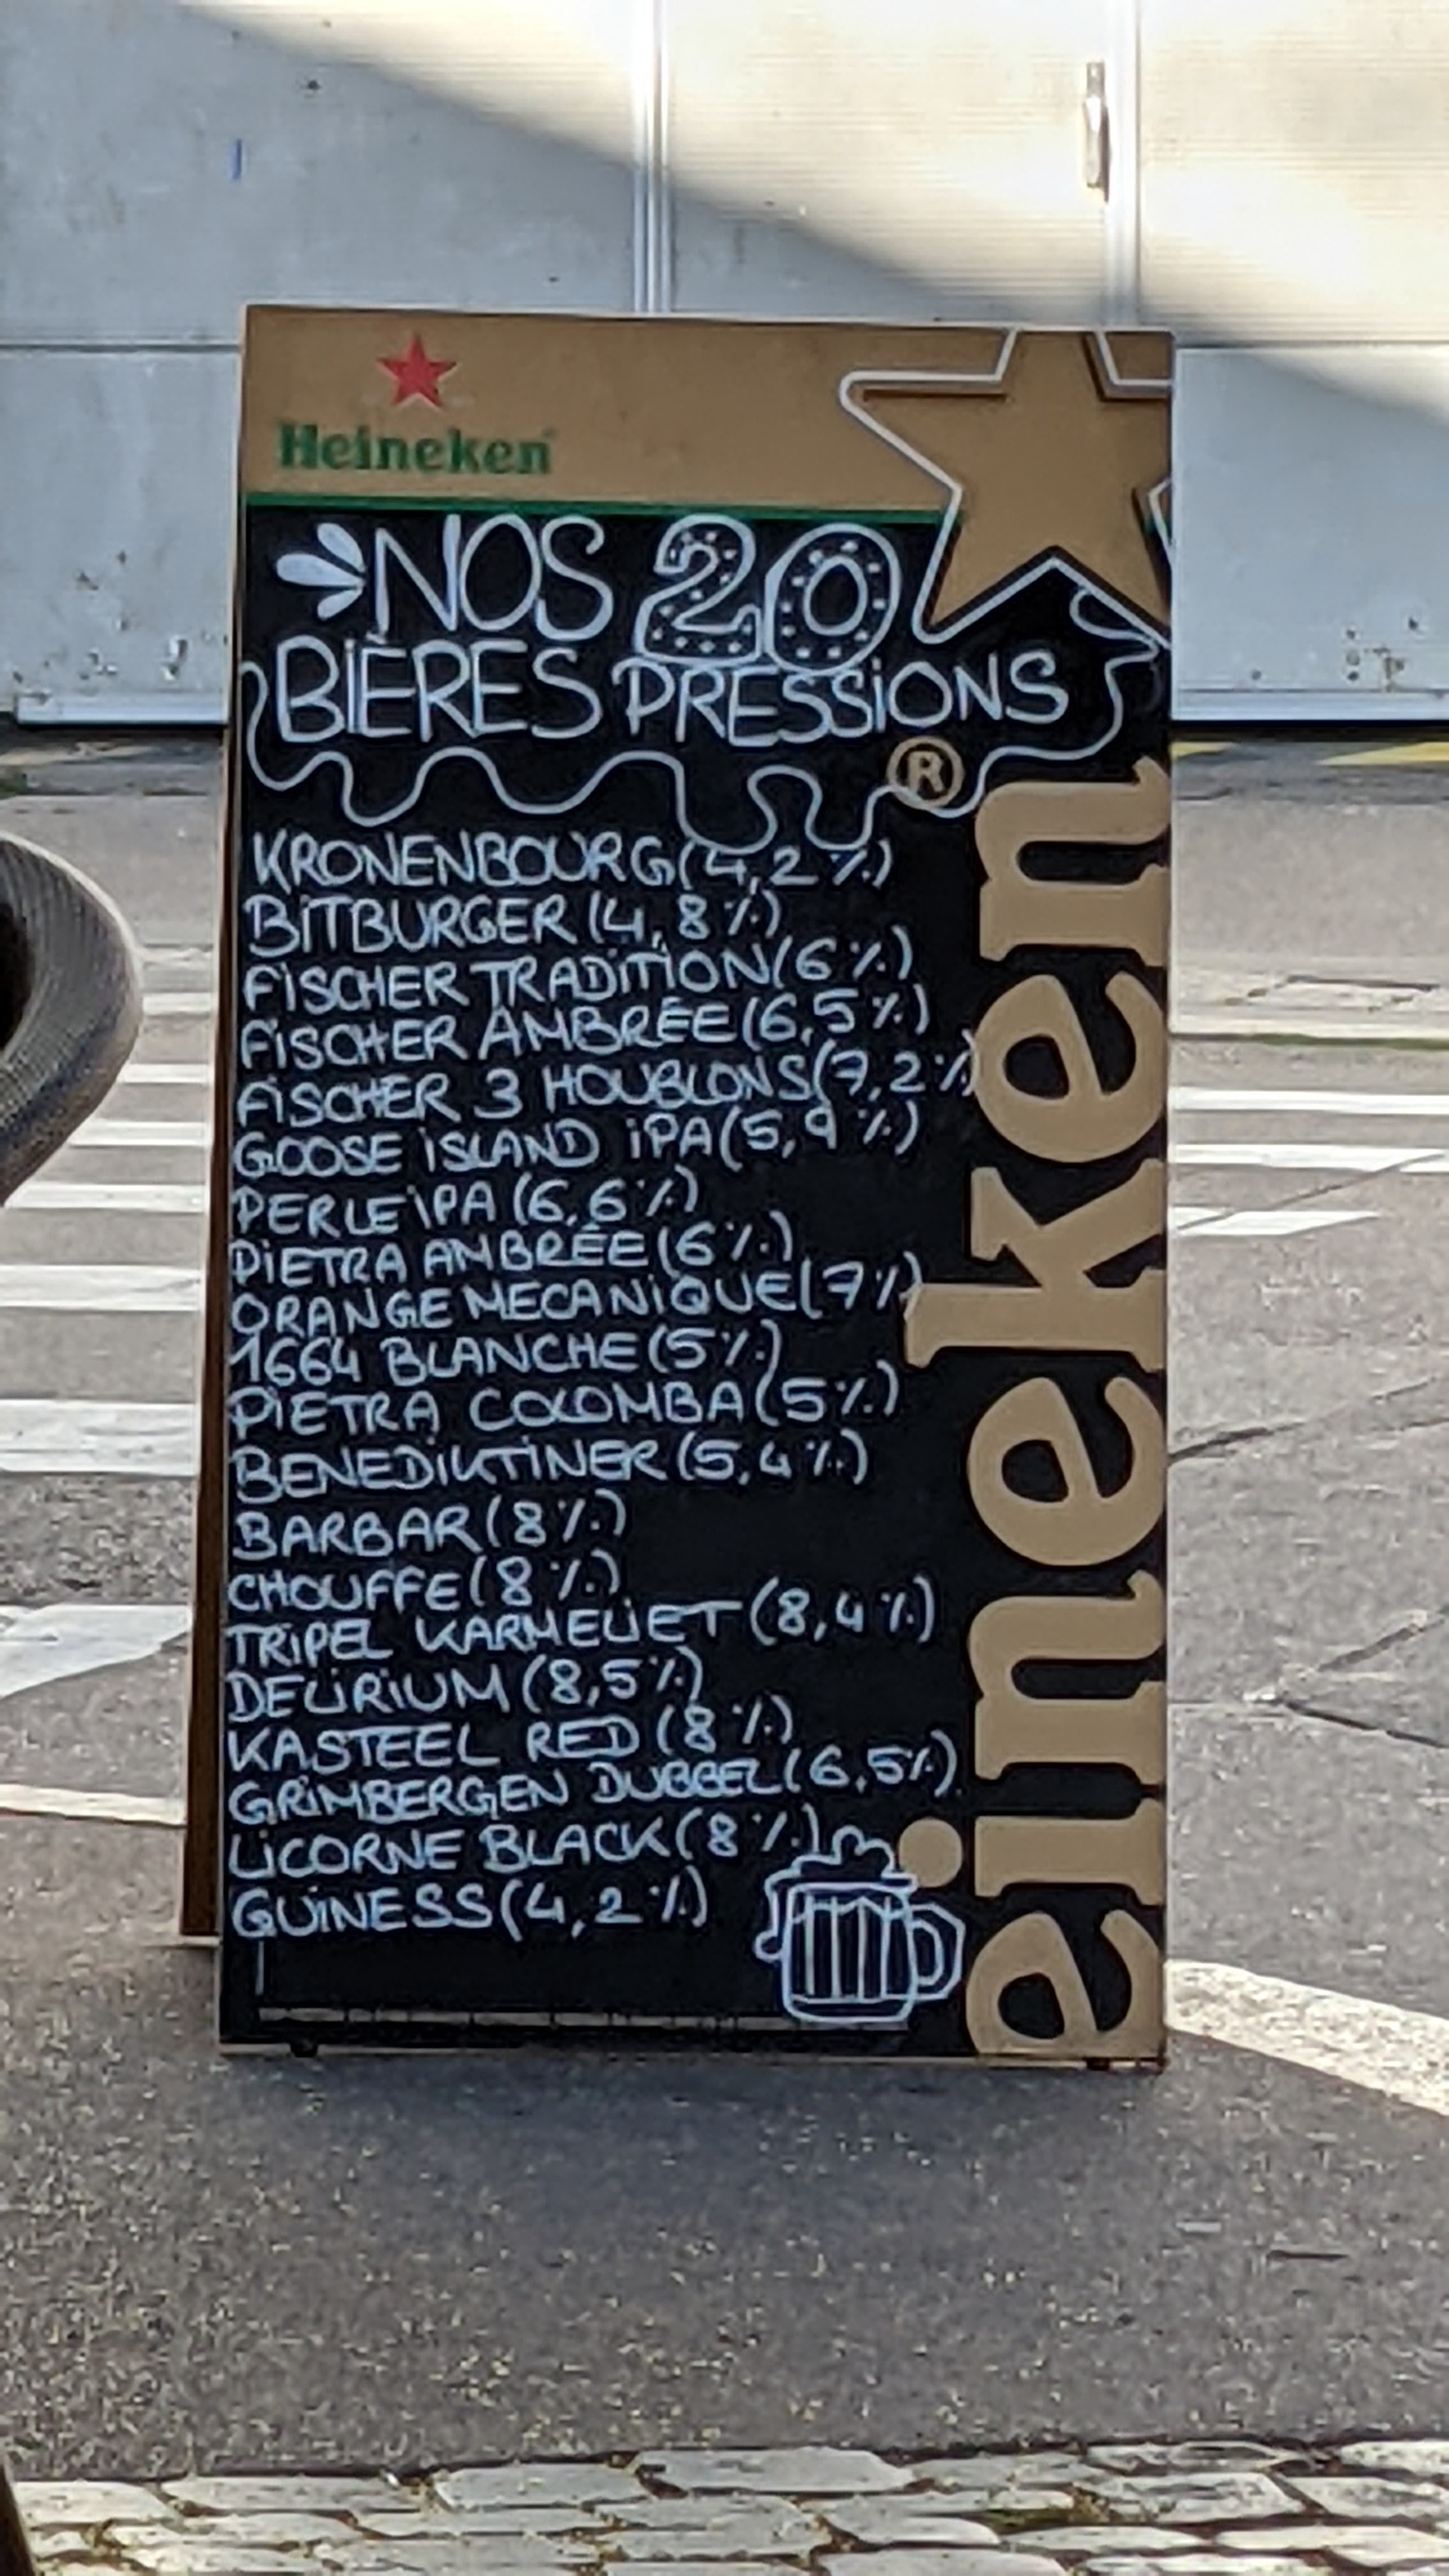 Heineken
NOS 20
BIÈRES PRESSIONS
®
KRONENBOURG (4,2%)
BITBURGER (4,8%)
FISCHER TRADITION (6%)
FISCHER AMBRÉE (6,5%)
FISCHER 3 HOUBLONS (7,2%)
GOOSE ISLAND IPA (5,9%)
PERLE IPA (6,6%)
PIETRA AMBRÉE (6%)
ORANGE MECANIQUE (7%)
1664 BLANCHE (5%)
PIETRA COLOMBA (5%)
BENEDIKTINER (5,4%)
BARBAR (8%)
CHOUFFE (8%)
TRIPEL KARMELIET (8,4%)
DELIRIUM (8,5%)
KASTEEL RED (8%)
GRIMBERGEN DUBBEL (6,5%)
LICORNE BLACK (8%)
GUINESS (4,2%)
eineken